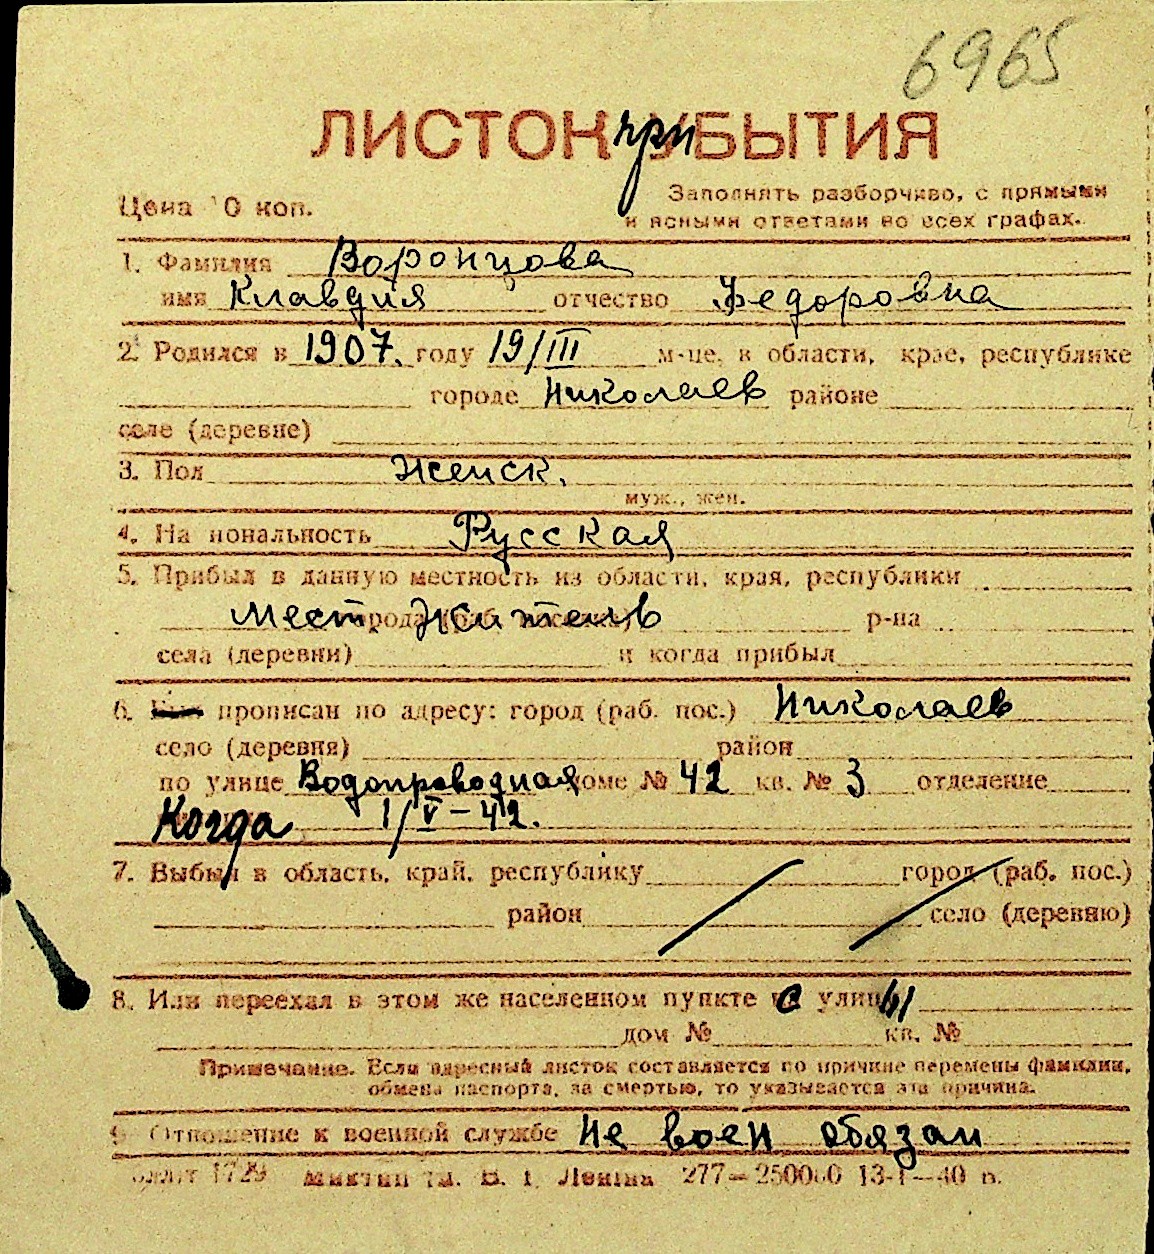 6965
ЛИСТОК при УБЫТИЯ
Цена 10 коп.
Заполнять разборчиво, с прямыми
и ясными ответами во всех графах.
1. Фамилия Воронцова
имя Клавдия отчество Федоровна
2. Родился в 1907. году 19/III м-це, в области, крае, республике
городе Николаев районе
селе (деревне)
3. Пол женск.
муж., жен.
4. Национальность Русская
5. Прибыл в данную местность из области, края, республики
мест житель города (раб. р-на
села (деревни) и когда прибыл
6. прописан по адресу: город (раб. пос.) Николаев
село (деревня) район
по улице Водопроводная доме № 42 кв. № 3 отделение
Когда 1/V-42.
7. Выбыл в область, край, республику город (раб. пос.)
район село (деревню)
8. Или переехал в этом же населенном пункте с улицы
дом № кв. №
Примечание. Если адресный листок составляется по причине перемены фамилии,
обмена паспорта, за смертью, то указывается эта причина.
9. Отношение к военной службе не воен обязан
1729 Ленина 277—250000 13-I—40 г.